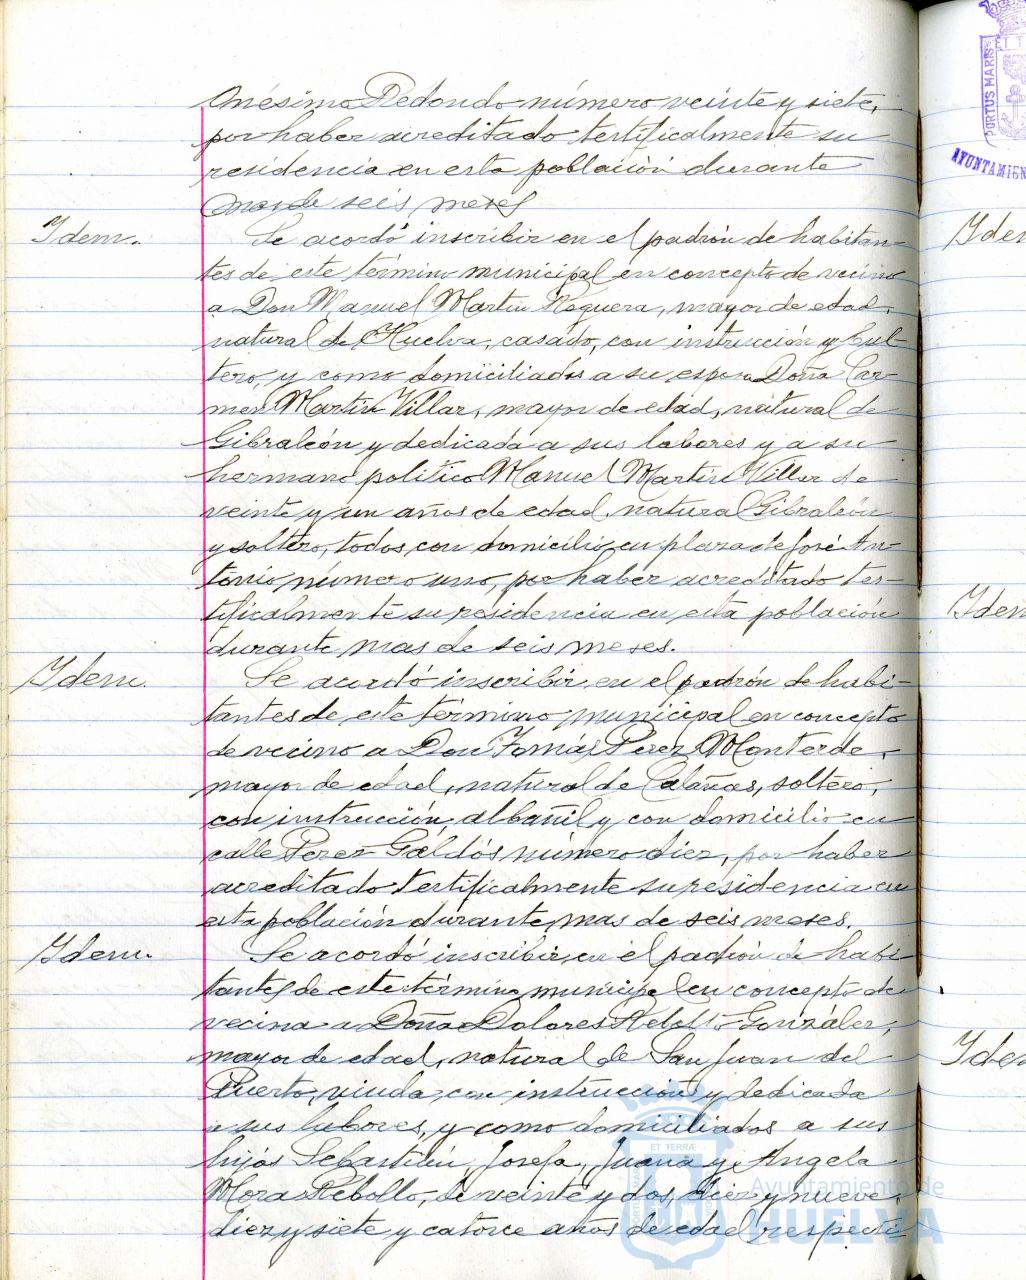 Onésimo Redondo número veinte y siete,
por haber acreditado testificalmente su
residencia en esta población durante
mas de seis meses
Idem.
Se acordó inscribir en el padrón de habitan-
tes de este término municipal en concepto de vecino
a Don Manuel Martin Noguera, mayor de edad,
natural de Huelva, casado, con instrucción y
tero, y como domiciliados a su esposa Doña Car-
men Martin Villar, mayor de edad, natural de
Gibraleón y dedicada a sus labores y a su
hermano politico Manuel Martin Villar de
veinte y un años de edad, natural Gibraleón
y soltero, todos con domicilio en plaza de José An-
tonio número uno, por haber acreditado tes-
tificalmente su residencia en esta población
durante mas de seis meses.
Idem.
Se acordó inscribir en el padrón de habi-
tantes de este término municipal en concepto
de vecino a Don Tomás Perez Monterde,
mayor de edad, natural de Calañas, soltero,
con instrucción, albañil y con domicilio en
calle Perez Galdós número diez, por haber
acreditado testificalmente su residencia en
esta población durante mas de seis meses.
Idem.
Se acordó inscribir en el padrón de habi-
tantes de este término municipal en concepto de
vecina a Doña Dolores Rebollo González,
mayor de edad, natural de San Juan del
Puerto, viuda, con instrucción y dedicada
a sus labores, y como domiciliados a sus
hijos Sebastián, Josefa, Juana y Angela
Mora Rebollo, de veinte y dos, diez y nueve,
diez y siete y catorce años de edad respecti
Iden
Iden
Iden
PORTUS MARIS
ET T
AYUNTAMIEN
ET TERRÆ
Ayuntamiento de
HUELVA